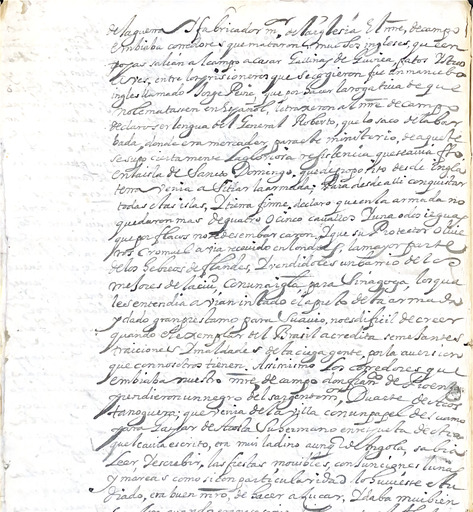 de la guerra y fabricador mr de la yglesia. El mre. de campo
embiaba corredores que mataron muchos ingleses, que en
salian al campo a casar Gallinas de Guinea, Patos
entre los prisioneros que se cogieron fue un mancebo
ingles llamado Jorge que por hacer la rogativa de que
no le matasen en Español, le traxeron al mre de campo
declaro ser lengua del General Roberto, que lo saco de la bar
bada, donde era mercader, para este ministerio, de aqui
se supo ciertamente la gloriosa resistencia que se avia
en la isla de Santo Domingo, que de proposito desde Ingla
terra venia a sitiar la armada; para desde alli conquistar
todas estas islas, y tierra firme, declaro que en la armada no
quedaron mas de quatro o cinco caballos y una o dos ieguas
que por flacos no desembarcaron, y que su Protector Olive
rios Cromuel avia recivido en Londres, la mayor parte
de los hebreos de flandes, y vendidoles un barrio de los
mejores de la ciud, con una iglesia para Sinagoga, los qua
les entendia avian instado el apresto de la armada
y dado gran prestamo para su avio, no es dificil de creer
quando el exemplar del Brasil acredita semejantes
traiciones y maldades de la ciega gente, por la aversion
que con nosotros tienen. Asimismo los corredores que
embiaba nuestro mre de campo don
prendieron un negro del sargento mr Duarte de
que venia de la villa con un papel del
para Gaspar de su hermano en respuesta de otro
que le avia escrito, era mui ladino aunq de Angola, sabia
Leer, y escribir, las fiestas movibles, conjunciones, lunas
y mareas como si con particularidad lo huviese estu
diado, era buen mro de hacer azucar, y daba mui bien